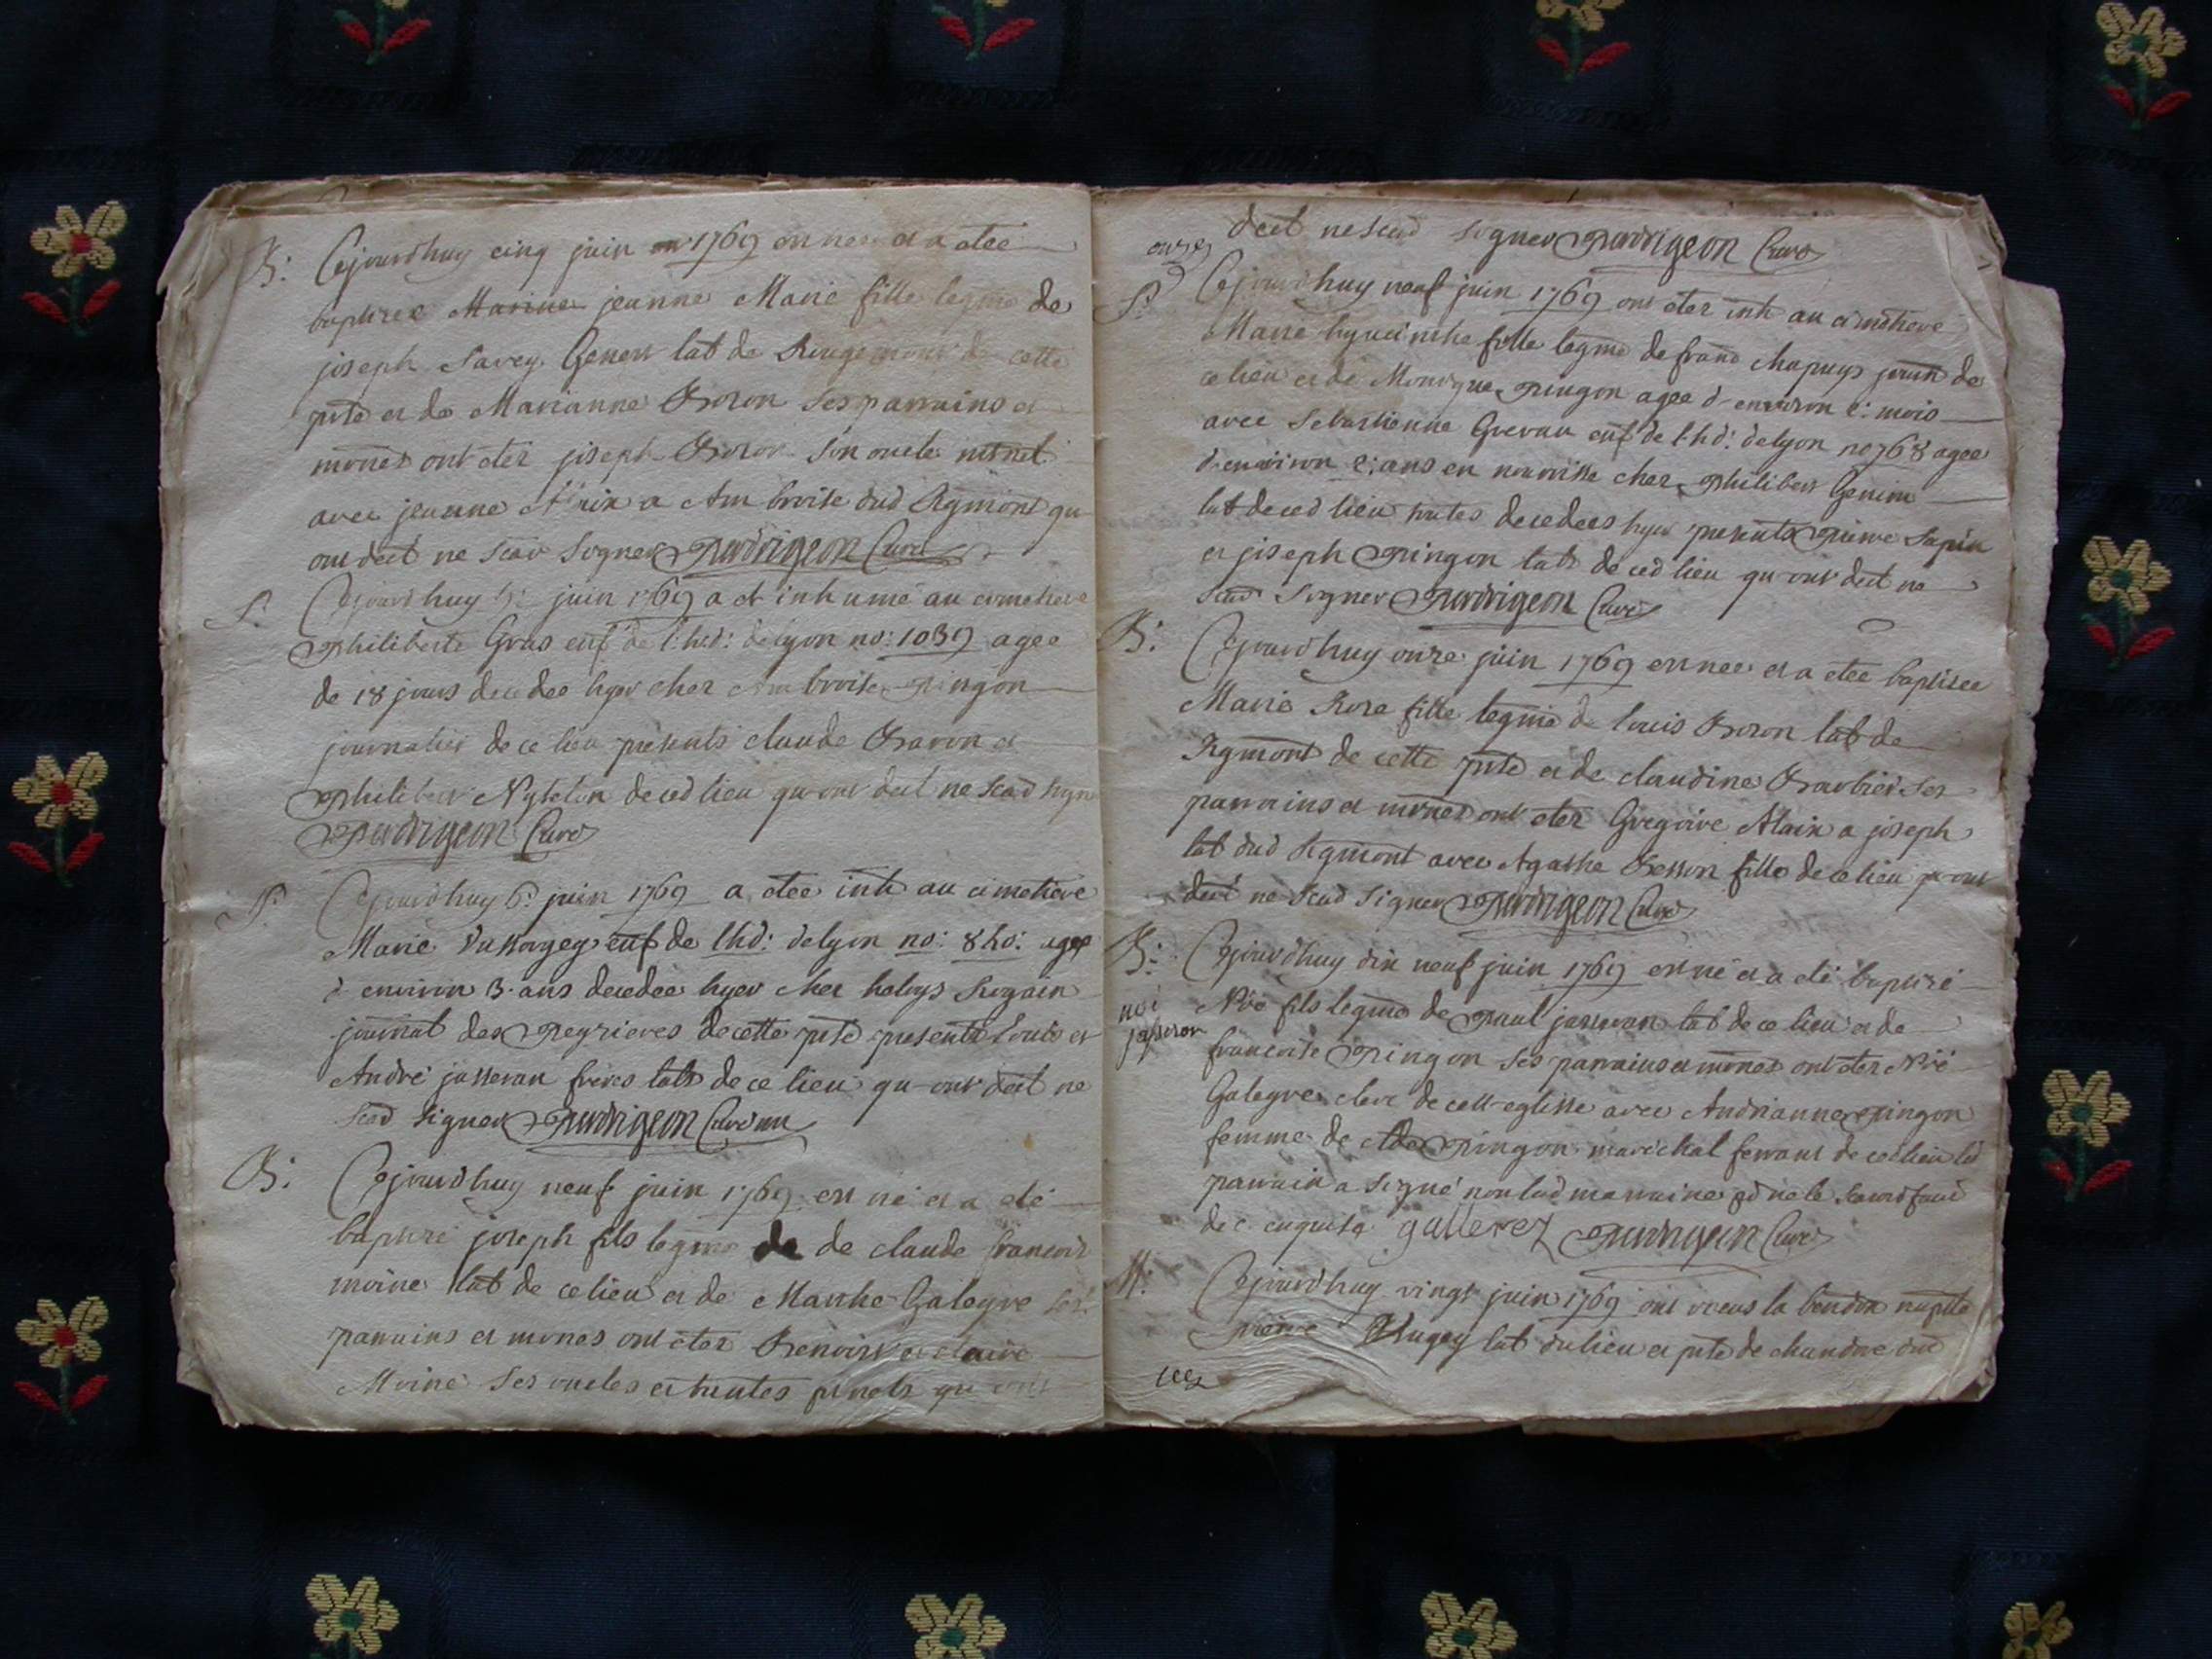 B: Cejourdhuy cinq juin 1769 est nee et a etee
baptisee Marine jeanne Marie fille legme de
joseph Savey Genest lab de Rougemont de cette
psse et de Marianne Bozon ses parrains et
mrnes ont eter joseph Bozon son oncle mrnel
avec jeanne Alaix a Ambroise dud Rgmont qu
ont deit ne scav signer Perdrigeon Curé
S: Cejourdhuy juin 1769 a et inhumé au cimetiere
philiberte Gras enf de l'hd: de lyon no: 1039 agee
de 18 jours decedee hyer chez Ambroise pingon
journalier de ce lieu presents claude Baron et
philibert de ced lieu qu ont deit ne scad sign
Perdrigeon Curé
S: Cejourdhuy 6: juin 1769 a etee inh au cimetiere
Marie enf de lhd: de lyon no: 840: agee
d environ 3 ans decedee hyer chez
journal des peyrieres de cette psse presents Louis et
André jasseran freres labs de ce lieu qu ont deit ne
scad signer Perdrigeon Curé
B: Cejourdhuy neuf juin 1769 est né et a eté
baptisé joseph fils legme de de claude francois
moine lab de ce lieu et de Marthe Galegre ses
parrains et mrnes ont eter Benoist et claire
Moine ses oncles et tantes prnels qu ont
deit ne scad signer Perdrigeon Curé
S: Cejourdhuy neuf juin 1769 ont eter inh au cimetiere
Marie hyacinthe fille legme de franc Chapuys journ de
ce lieu et de Monique pingon agee d environ 2: mois
avec Sebastienne enf de l hd: de lyon no 768 agee
d environ 2: ans en nourrisse chez philibert Genin
lab de ced lieu toutes decedees hyer presents pierre Sapin
et joseph pingon labs de ced lieu qu ont deit ne
scad signer Perdrigeon Curé
B: Cejourdhuy onze juin 1769 est nee et a etee baptisee
Marie Rose fille legme de louis Bozon lab de
Rgmont de cette psse et de claudine Barbier ses
parrains et mrnes ont eter Gregoire Alaix a joseph
lab dud Rgmont avec Agathe Besson fille de ce lieu qu ont
deit ne scad signer Perdrigeon Curé
B: Cejourdhuy dix neuf juin 1769 est né et a eté baptisé
noé
jasseron
Noé fils legme de paul jasseran lab de ce lieu et de
francoise pingon ses parrains et mrnes ont eter Noé
Galegre clerc de cett eglisse avec Andrianne pingon
femme de pingon marechal ferrant de ced lieu led
parrain a signé non lad marraine pd ne le scavoir faire
de c enquise gallerey Perdrigeon Curé
M: Cejourdhuy vingt juin 1769 ont receus la bendon nuptle
pierre Hugey lab du lieu et psse de chandore dud